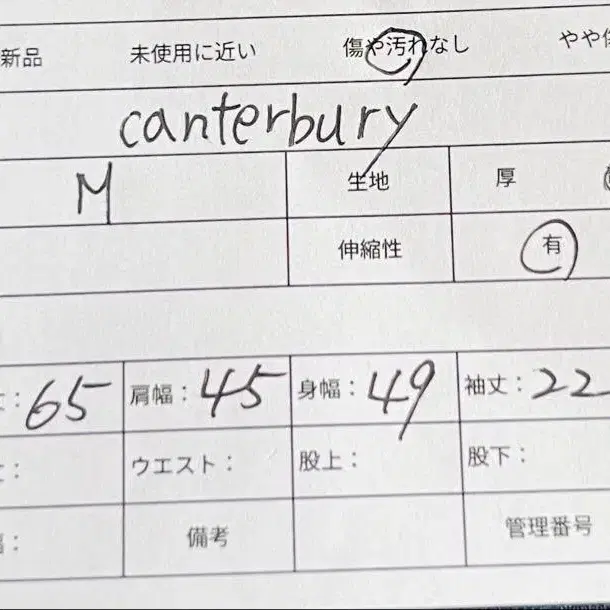 新品 未使用に近い 傷や汚れなし やや傷
canterbury
M 生地 厚
伸縮性 有
丈：65 肩幅：45 身幅：49 袖丈：22
： ウエスト： 股上： 股下：
幅： 備考 管理番号